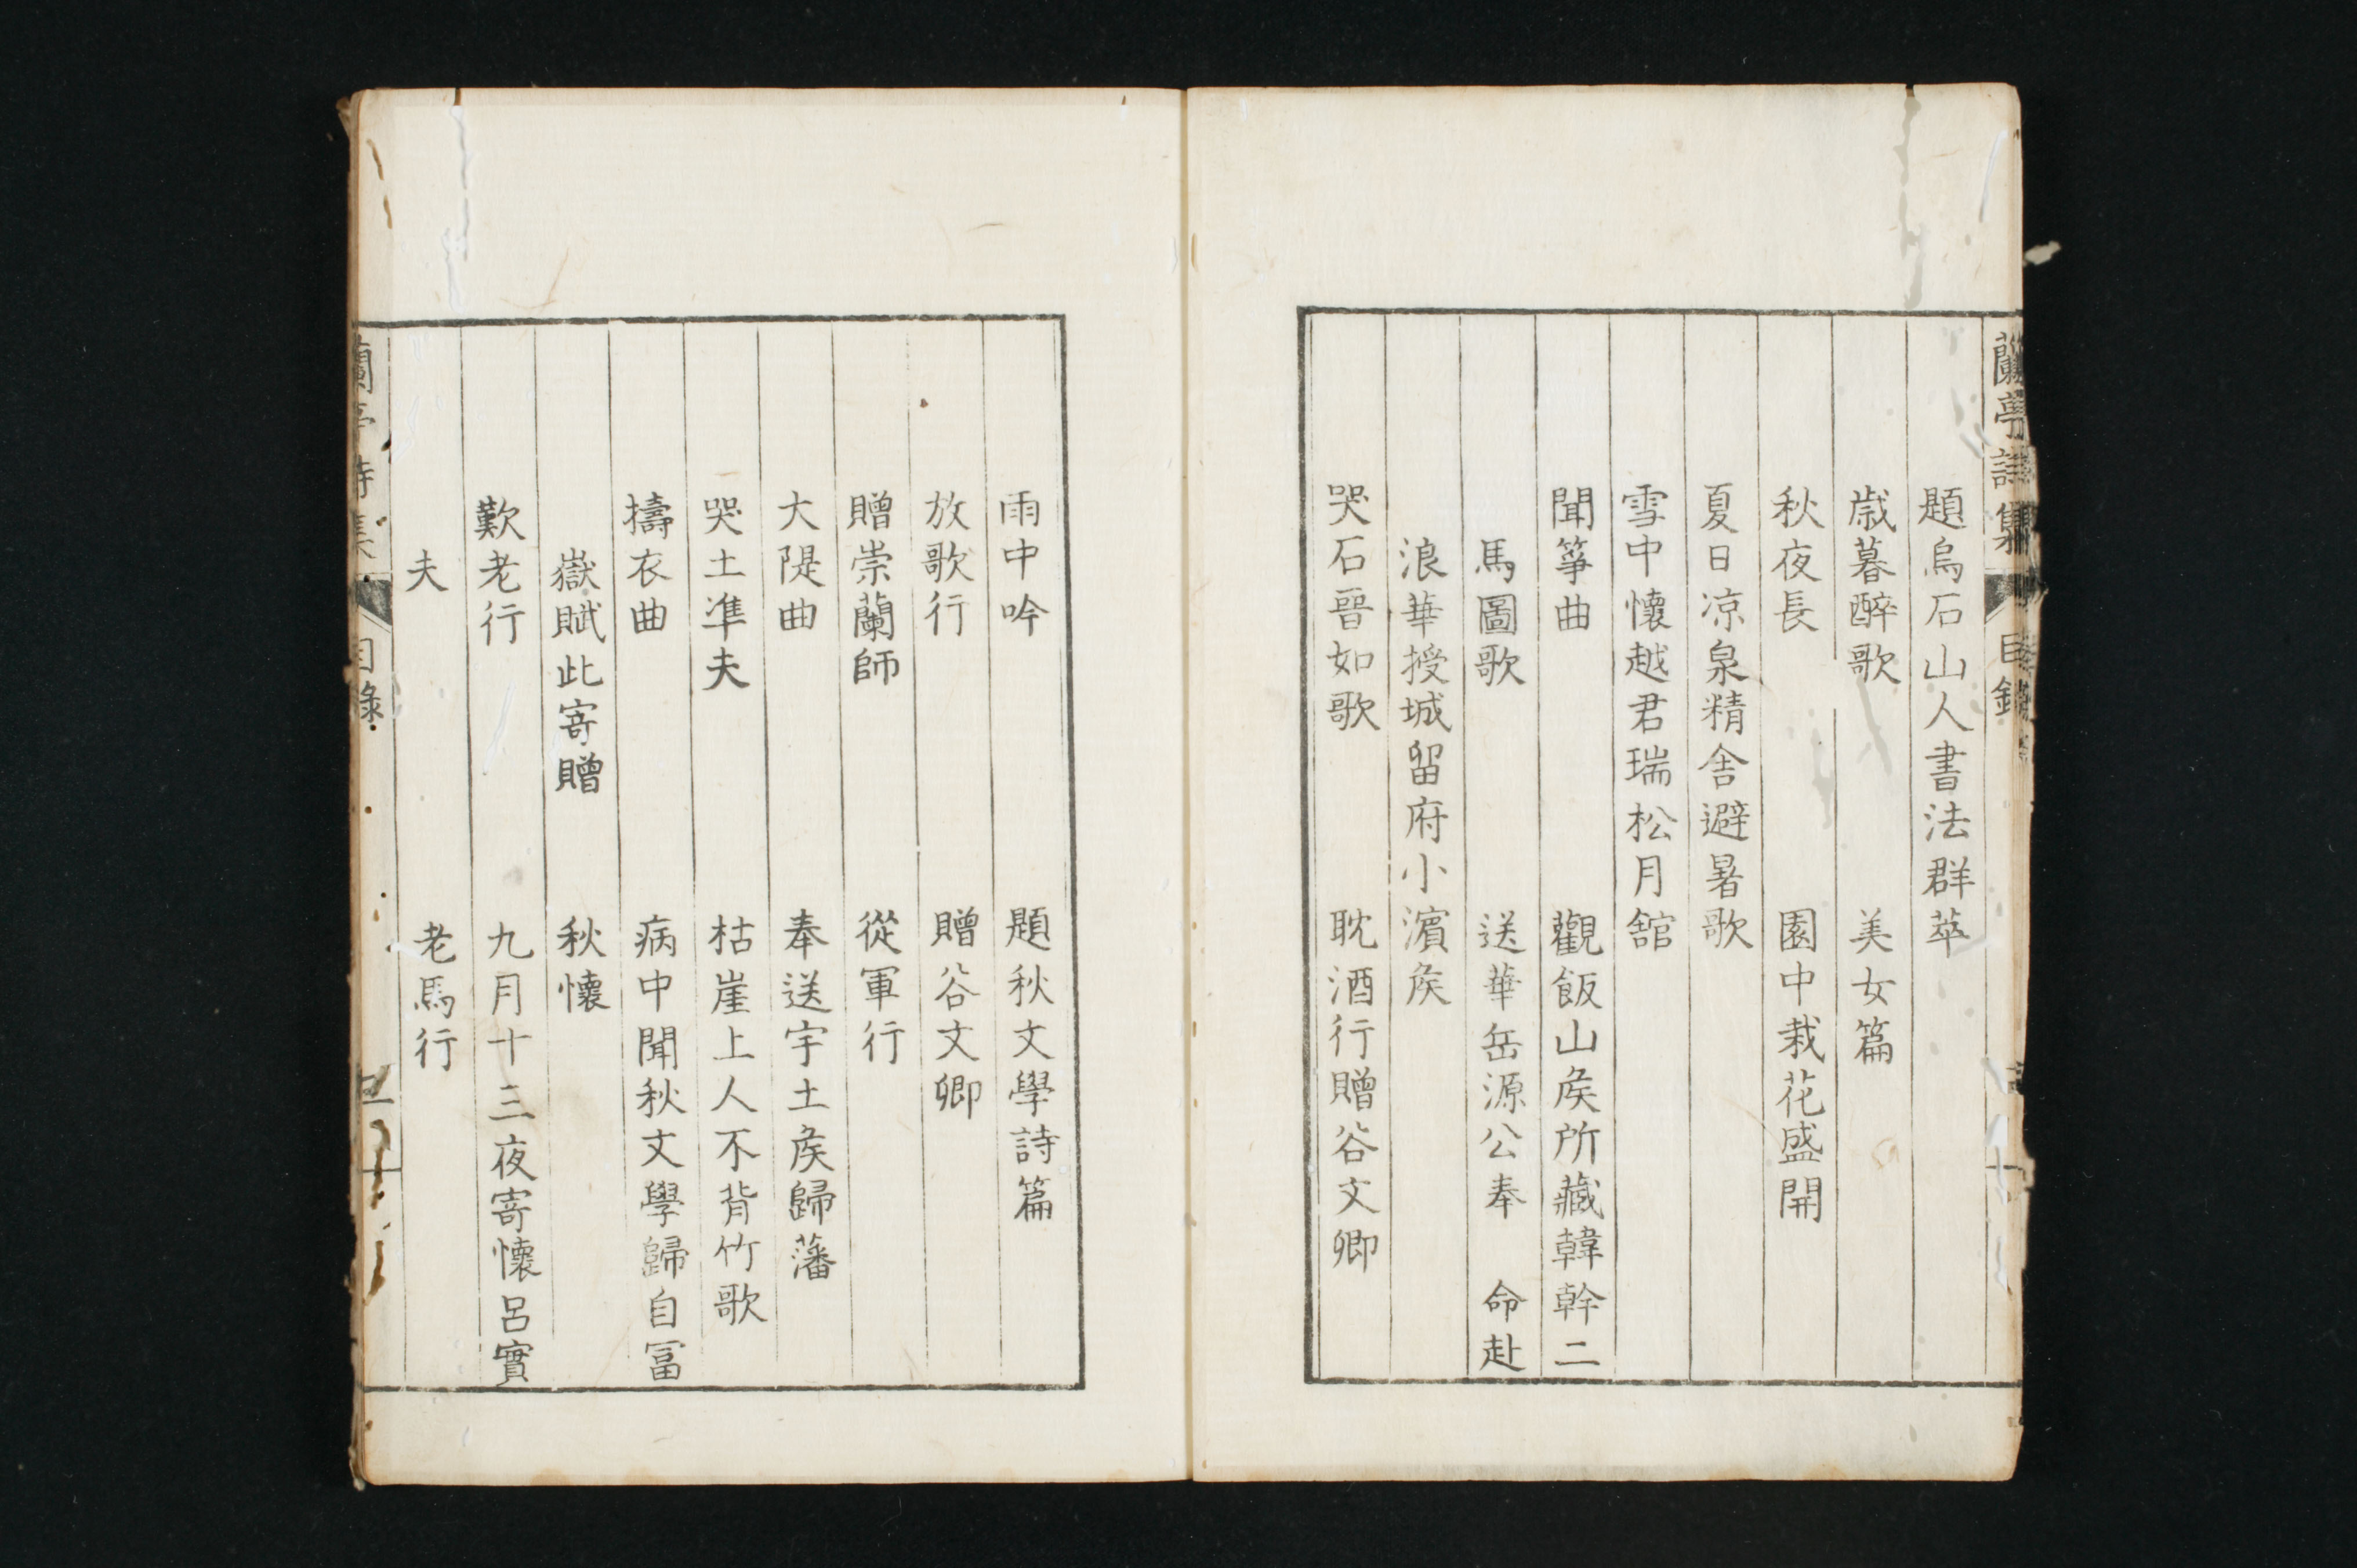 蘭亭詩集 目録
題烏石山人書法群萃
歳暮醉歌 美女篇
秋夜長 園中栽花盛開
夏日凉泉精舎避暑歌
雪中懷越君瑞松月舘
聞箏曲 觀飯山矦所藏韓幹二
馬圖歌 送華岳源公奉 命赴
浪華授城留府小濵矦
哭石晉如歌 耽酒行贈谷文卿
雨中吟 題秋文學詩篇
放歌行 贈谷文卿
贈崇蘭師 從軍行
大隄曲 奉送宇土矦歸藩
哭土凖夫 枯崖上人不背竹歌
擣衣曲 病中聞秋文學歸自冨
嶽賦此寄贈 秋懷
歎老行 九月十三夜寄懷呂實
夫 老馬行
蘭亭詩集 目録